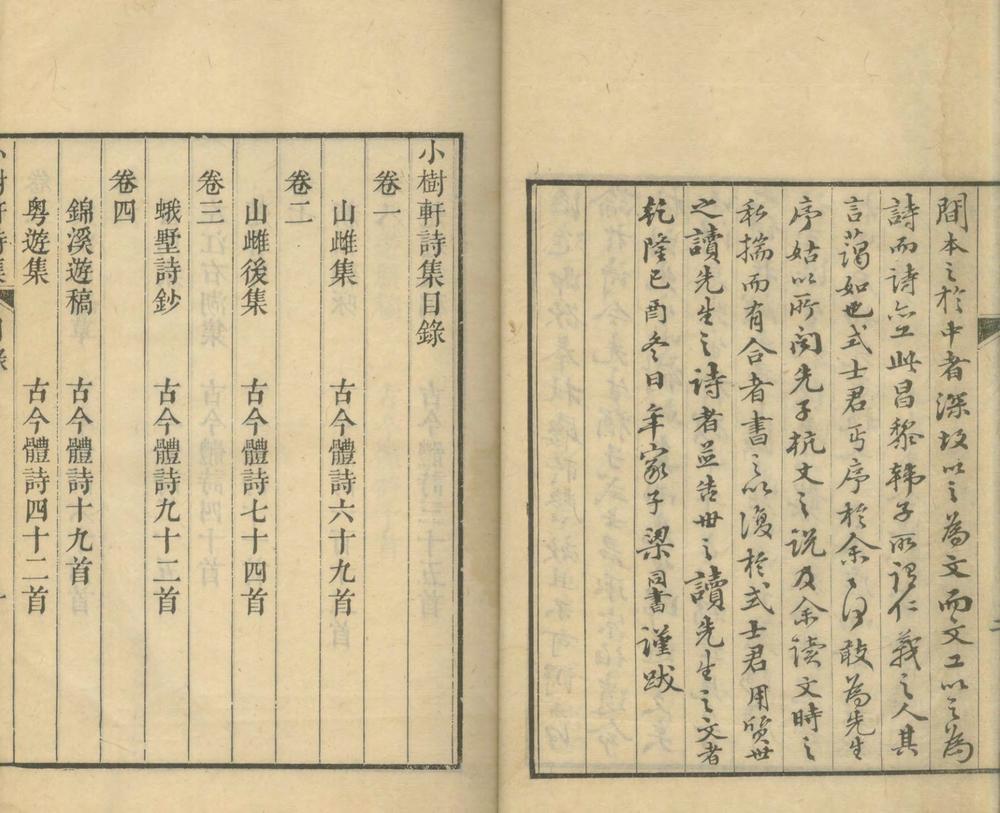 間本之於中者深故以之為文而文工以之為
詩而詩亦工此昌黎韓子所謂仁義之人其
言藹如也式士君丐序於余余何敢為先生
序姑以所聞先子抗文之說及余讀文時之
私揣而有合者書之以復於式士君用質世
之讀先生之詩者並告世之讀先生之文者
乾隆己酉冬日年家子梁同書謹跋
小樹軒詩集目錄
卷一
山雌集 古今體詩六十九首
卷二
山雌後集 古今體詩七十四首
卷三
蛾墅詩鈔 古今體詩九十二首
卷四
錦溪遊稿 古今體詩十九首
粵遊集 古今體詩四十二首